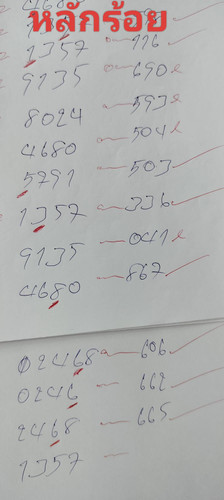 หลักร้อย
4680
1357 - 116
9135 - 690
8024 - 593
4680 - 504
5791 - 503
1357 - 336
9135 - 041
4680 - 867
02468 - 606
0246 - 662
2468 - 665
1357 -